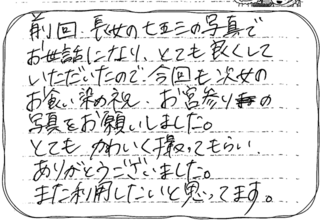 前回、長女の七五三の写真で
お世話になり、とても良くして
いただいたので、今回も次女の
お食い染め祝、お宮参りの
写真をお願いしました。
とても かわいく撮ってもらい
ありがとうございました。
また利用したいと思ってます。